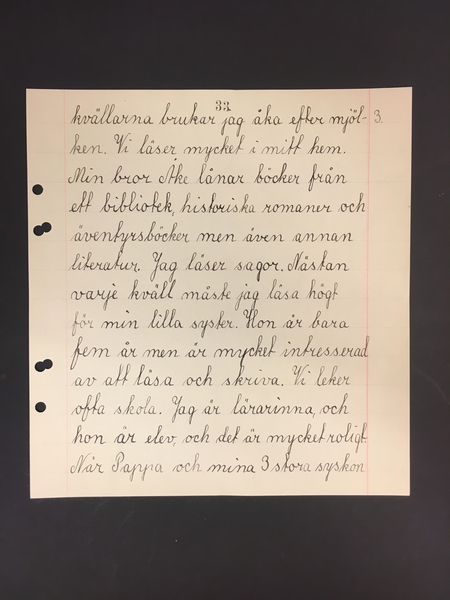 33.
kvällarna brukar jag åka efter mjöl- 3.
ken. Vi läser mycket i mitt hem.
Min bror Åke lånar böcker från
ett bibliotek, historiska romaner och
äventyrsböcker men även annan
literatur. Jag läser sagor. Nästan
varje kväll måste jag läsa högt
för min lilla syster. Hon är bara
fem år men är mycket intresserad
av att läsa och skriva. Vi leker
ofta skola. Jag är lärarinna, och
hon är elev, och det är mycket roligt.
När Pappa och mina 3 stora syskon